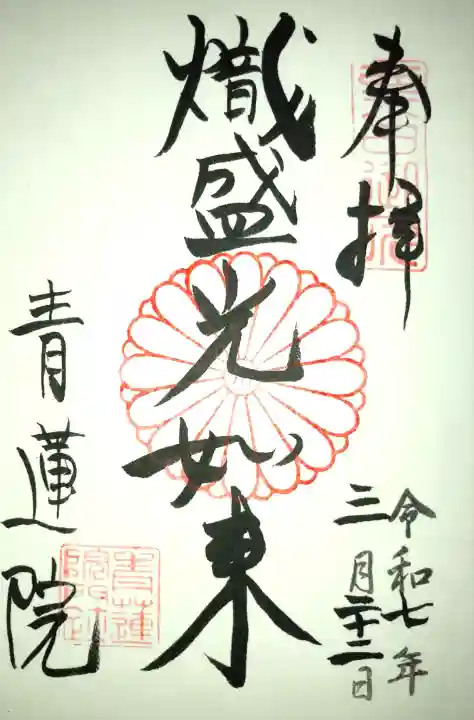 奉拝
熾盛光如来
令和七年
三月二十二日
青蓮院
青蓮
院門跡